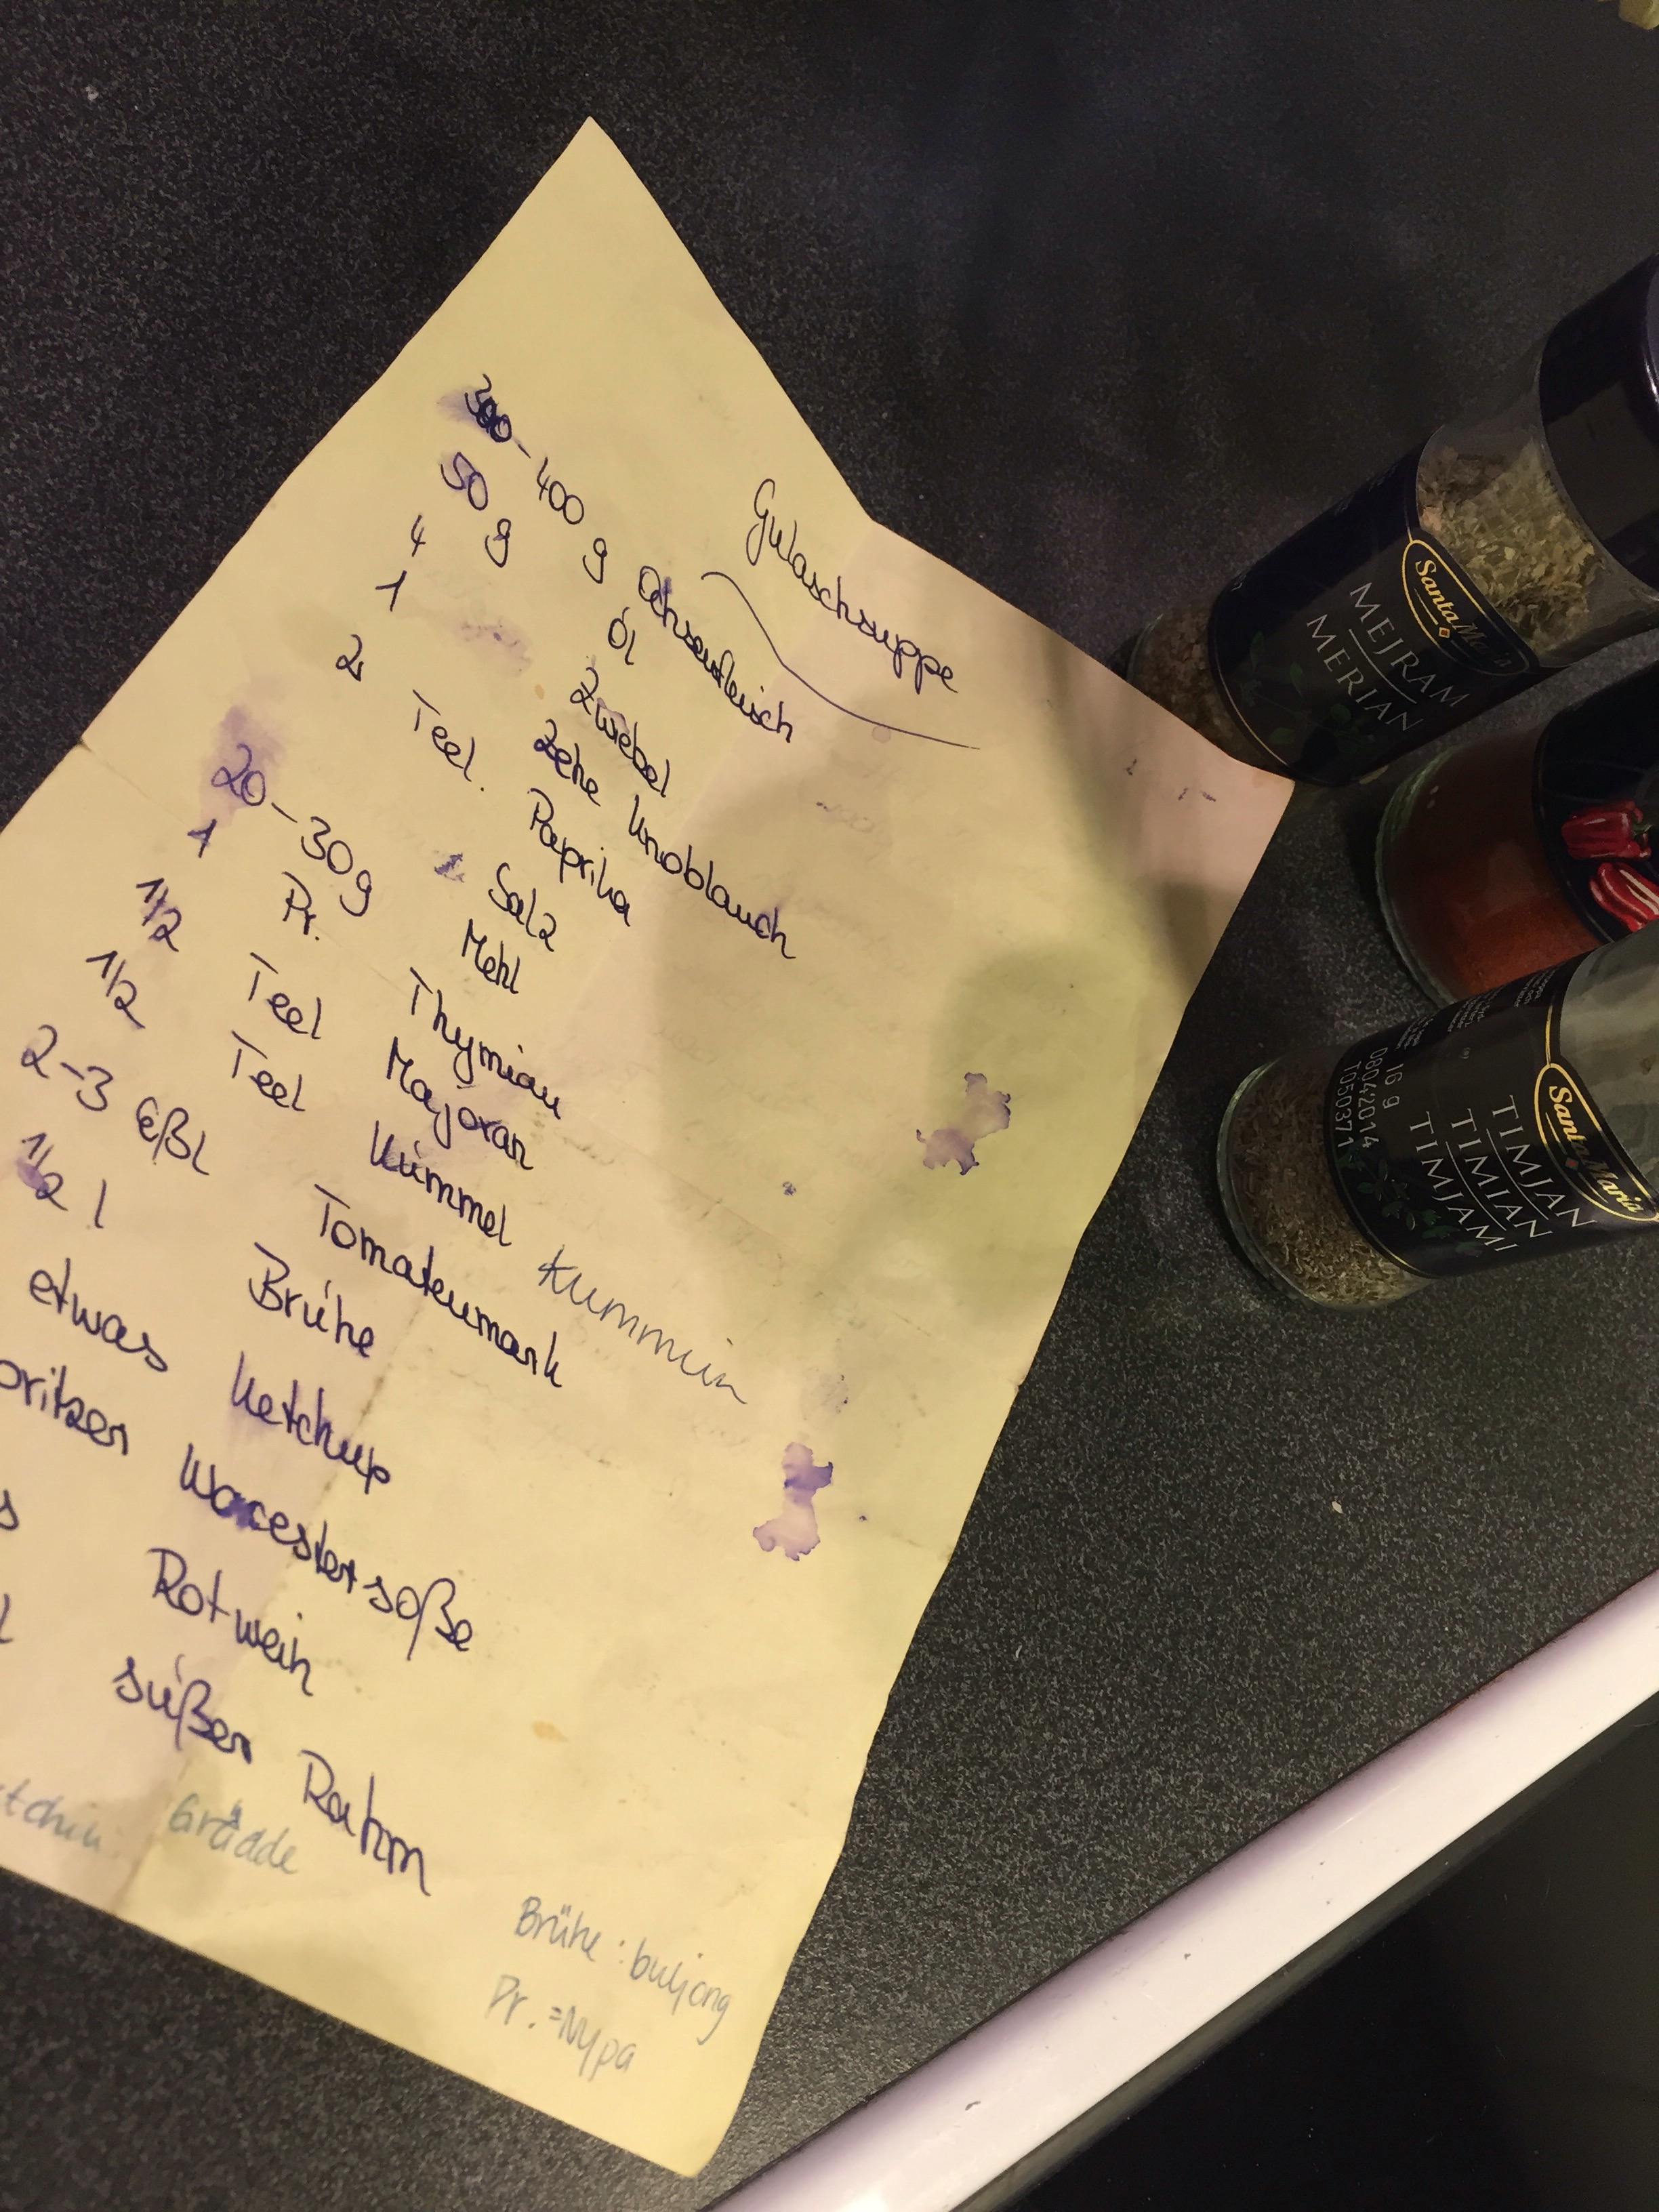 Gulaschsuppe
300-400 g Ochsenfleisch
50 g Öl
4 Zwiebel
1 Zehe Knoblauch
2 Teel. Paprika
Salz
20-30g Mehl
1 Pr. Thymian
1/2 Teel Majoran
1/2 Teel Kümmel Kummin
2-3 Eßl Tomatenmark
1/2 l Brühe
etwas Ketchup
pritzer Worcestersoße
s Rotwein
l süßen Rahm
Grädde
Brühe: buljong
Pr. = Nypa
Santa Maria
MEJRAM
MERIAN
Santa Maria
TIMJAN
TIMIAN
TIMJAMI
16 g
08042014
T050371